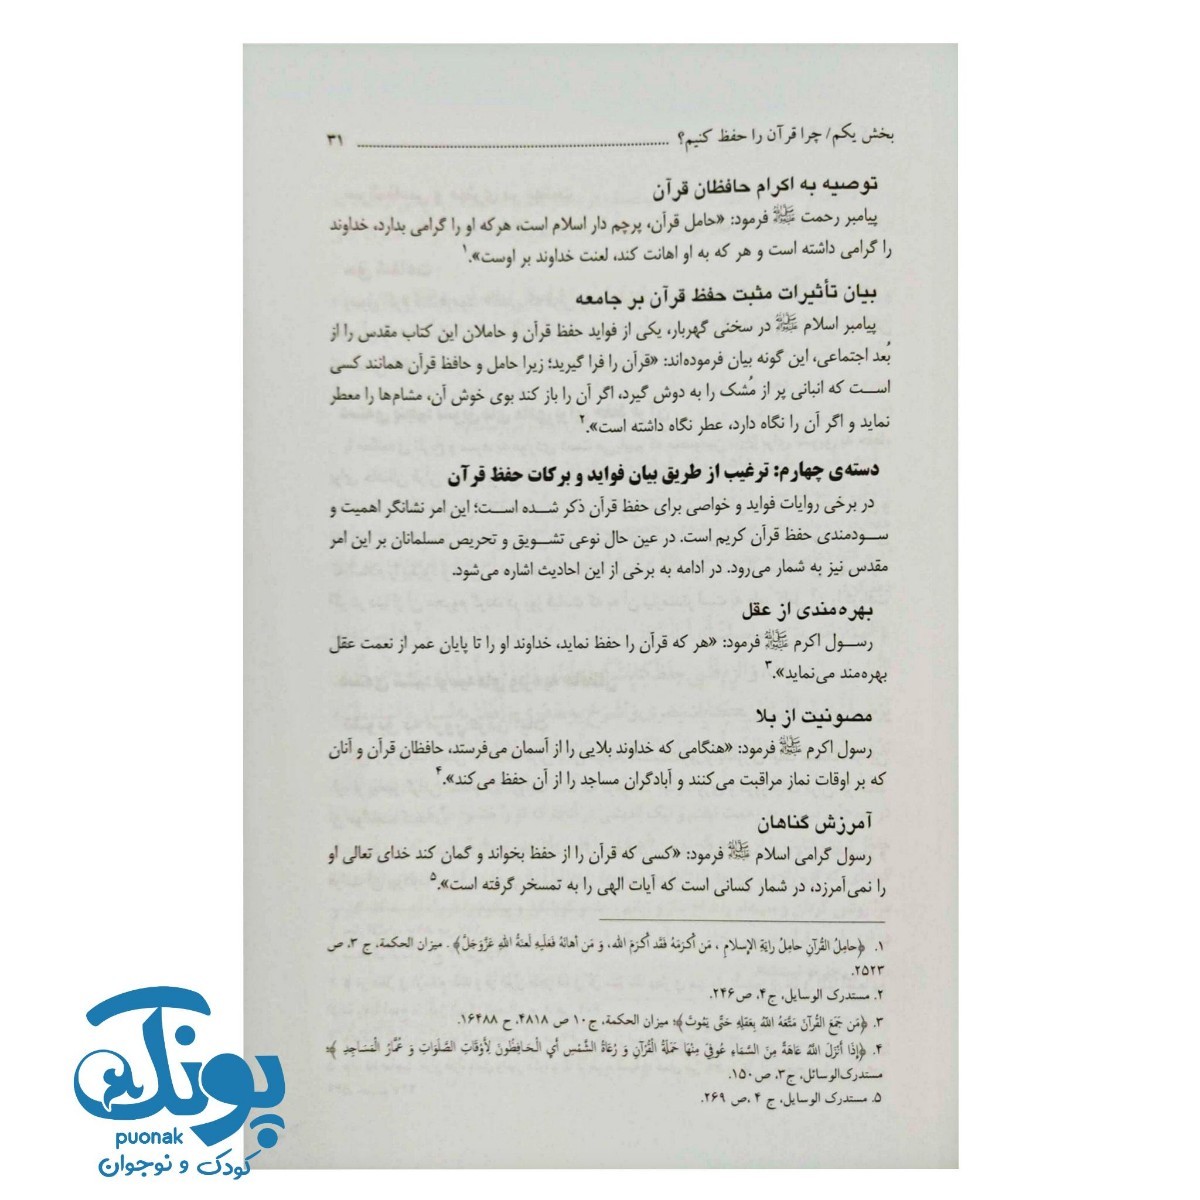 بخش یکم/ چرا قرآن را حفظ کنیم؟ ........................................................ ۳۱
توصیه به اکرام حافظان قرآن
پیامبر رحمت ﷺ فرمود: «حامل قرآن، پرچم دار اسلام است، هرکه او را گرامی بدارد، خداوند
را گرامی داشته است و هر که به او اهانت کند، لعنت خداوند بر اوست».۱
بیان تأثیرات مثبت حفظ قرآن بر جامعه
پیامبر اسلام ﷺ در سخنی گهربار، یکی از فواید حفظ قرآن و حاملان این کتاب مقدس را از
بُعد اجتماعی، این گونه بیان فرموده‌اند: «قرآن را فرا گیرید؛ زیرا حامل و حافظ قرآن همانند کسی
است که انبانی پر از مُشک را به دوش گیرد، اگر آن را باز کند بوی خوش آن، مشام‌ها را معطر
نماید و اگر آن را نگاه دارد، عطر نگاه داشته است».۲
دسته‌ی چهارم: ترغیب از طریق بیان فواید و برکات حفظ قرآن
در برخی روایات فواید و خواصی برای حفظ قرآن ذکر شده است؛ این امر نشانگر اهمیت و
سودمندی حفظ قرآن کریم است. در عین حال نوعی تشویق و تحریص مسلمانان بر این امر
مقدس نیز به شمار می‌رود. در ادامه به برخی از این احادیث اشاره می‌شود.
بهره‌مندی از عقل
رسول اکرم ﷺ فرمود: «هر که قرآن را حفظ نماید، خداوند او را تا پایان عمر از نعمت عقل
بهره‌مند می‌نماید».۳
مصونیت از بلا
رسول اکرم ﷺ فرمود: «هنگامی که خداوند بلایی را از آسمان می‌فرستد، حافظان قرآن و آنان
که بر اوقات نماز مراقبت می‌کنند و آبادگران مساجد را از آن حفظ می‌کند».۴
آمرزش گناهان
رسول گرامی اسلام ﷺ فرمود: «کسی که قرآن را از حفظ بخواند و گمان کند خدای تعالی او
را نمی‌آمرزد، در شمار کسانی است که آیات الهی را به تمسخر گرفته است».۵
۱. ﴿حامِلُ القُرآنِ حامِلُ رایَةِ الإسلامِ ، مَن أکرَمَهُ فَقَد أکرَمَ الله، وَ مَن أهانَهُ فَعَلَیهِ لَعنَةُ اللهِ عَزَّوَجَلَّ﴾ . میزان الحکمة، ج ۳، ص
۲۵۲۳.
۲. مستدرک الوسایل، ج۴، ص۲۴۶.
۳. ﴿مَن جَمَعَ القُرآنَ مَتَّعَهُ اللهُ بِعَقلِهِ حَتَّی یَمُوتَ﴾؛ میزان الحکمة، ج۱۰ ص ۴۸۱۸، ح ۱۶۴۸۸.
۴. ﴿إذَا أنزَلَ اللهُ عَاهَةً مِنَ السَّمَاءِ عُوفِیَ مِنهَا حَمَلَةُ الْقُرآنِ وَ رُعَاةُ الشَّمْسِ أیِ الْحَافِظُونَ لِأوقَاتِ الصَّلَوَاتِ وَ عُمَّارُ الْمَسَاجِدِ﴾؛
مستدرک‌الوسائل، ج۳، ص۱۵۰.
۵. مستدرک الوسایل، ج ۴ ،ص ۲۶۹.
پونک
puonak
کودک و نوجوان